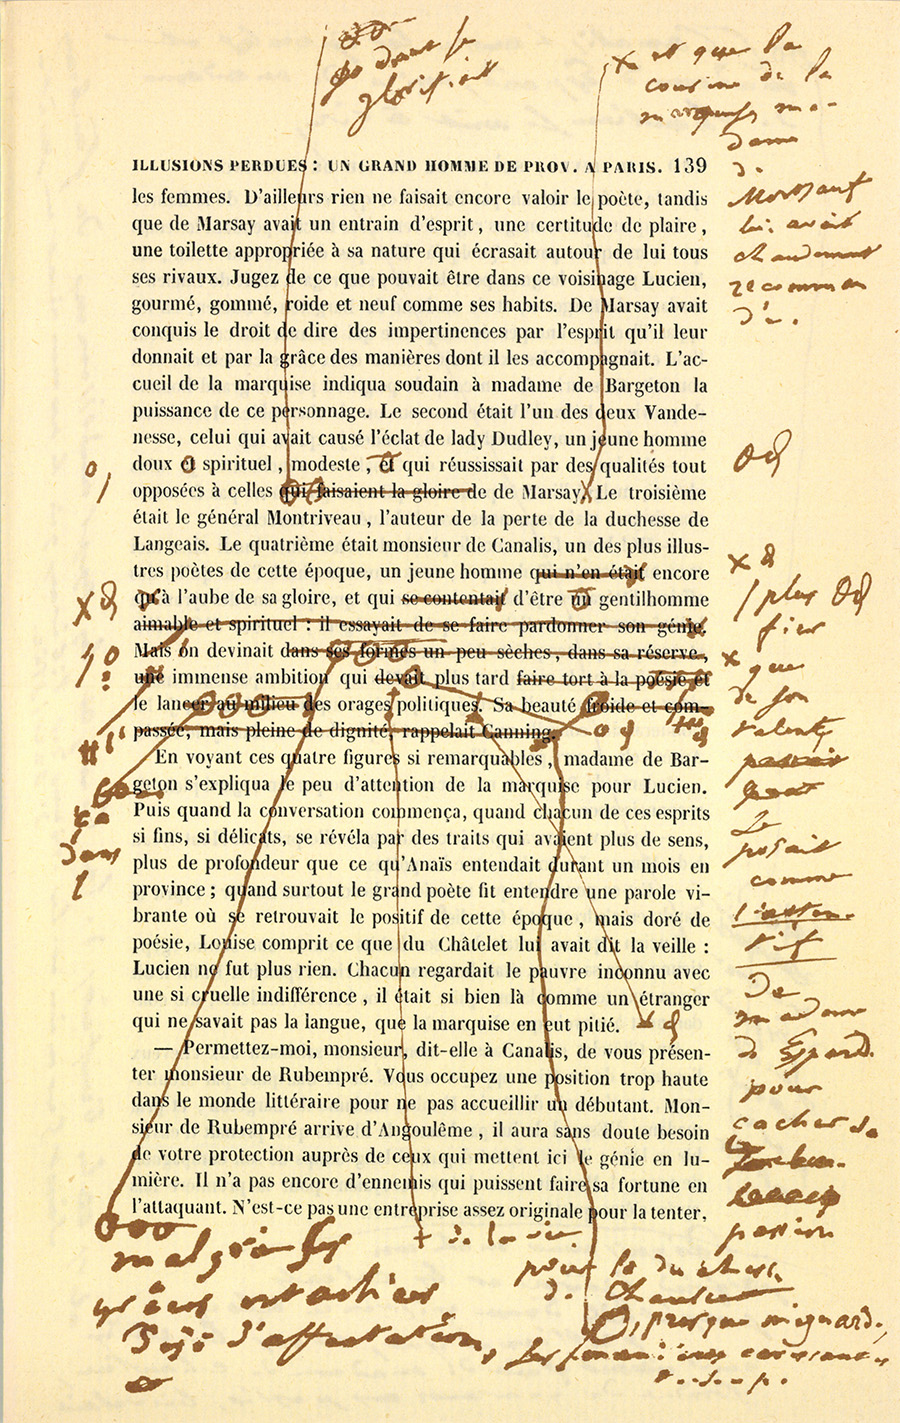 dont se
glorifiait
x et que la
cousine de la
marquise, ma-
dame
de
Mortsauf
lui avait
chaudement
recomman
dé.
ILLUSIONS PERDUES : UN GRAND HOMME DE PROV. A PARIS. 139
les femmes. D'ailleurs rien ne faisait encore valoir le poète, tandis
que de Marsay avait un entrain d'esprit, une certitude de plaire,
une toilette appropriée à sa nature qui écrasait autour de lui tous
ses rivaux. Jugez de ce que pouvait être dans ce voisinage Lucien,
gourmé, gommé, roide et neuf comme ses habits. De Marsay avait
conquis le droit de dire des impertinences par l'esprit qu'il leur
donnait et par la grâce des manières dont il les accompagnait. L'ac-
cueil de la marquise indiqua soudain à madame de Bargeton la
puissance de ce personnage. Le second était l'un des deux Vande-
nesse, celui qui avait causé l'éclat de lady Dudley, un jeune homme
doux et spirituel, modeste, et qui réussissait par des qualités tout
opposées à celles qui faisaient la gloire de de Marsay. Le troisième
était le général Montriveau, l'auteur de la perte de la duchesse de
Langeais. Le quatrième était monsieur de Canalis, un des plus illus-
tres poètes de cette époque, un jeune homme qui n'en était encore
qu'à l'aube de sa gloire, et qui se contentait d'être un gentilhomme
aimable et spirituel : il essayait de se faire pardonner son génie.
Mais on devinait dans ses formes un peu sèches, dans sa réserve,
une immense ambition qui devait plus tard faire tort à la poésie et
le lancer au milieu des orages politiques. Sa beauté froide et com-
passée, mais pleine de dignité, rappelait Canning.
En voyant ces quatre figures si remarquables, madame de Bar-
geton s'expliqua le peu d'attention de la marquise pour Lucien.
Puis quand la conversation commença, quand chacun de ces esprits
si fins, si délicats, se révéla par des traits qui avaient plus de sens,
plus de profondeur que ce qu'Anaïs entendait durant un mois en
province ; quand surtout le grand poète fit entendre une parole vi-
brante où se retrouvait le positif de cette époque, mais doré de
poésie, Louise comprit ce que du Châtelet lui avait dit la veille :
Lucien ne fut plus rien. Chacun regardait le pauvre inconnu avec
une si cruelle indifférence, il était si bien là comme un étranger
qui ne savait pas la langue, que la marquise en eut pitié.
— Permettez-moi, monsieur, dit-elle à Canalis, de vous présen-
ter monsieur de Rubempré. Vous occupez une position trop haute
dans le monde littéraire pour ne pas accueillir un débutant. Mon-
sieur de Rubempré arrive d'Angoulême, il aura sans doute besoin
de votre protection auprès de ceux qui mettent ici le génie en lu-
mière. Il n'a pas encore d'ennemis qui puissent faire sa fortune en
l'attaquant. N'est-ce pas une entreprise assez originale pour la tenter,
plus
fier
x que
de son
talent,
Le
posait
comme
l'atten-
tif
De
madame
de Espard
pour
cacher sa
passion
pour la duchesse
de Chaulieu
+ de la vie
malgré ses
grâces
d'affectation,
presque mignard,
dans